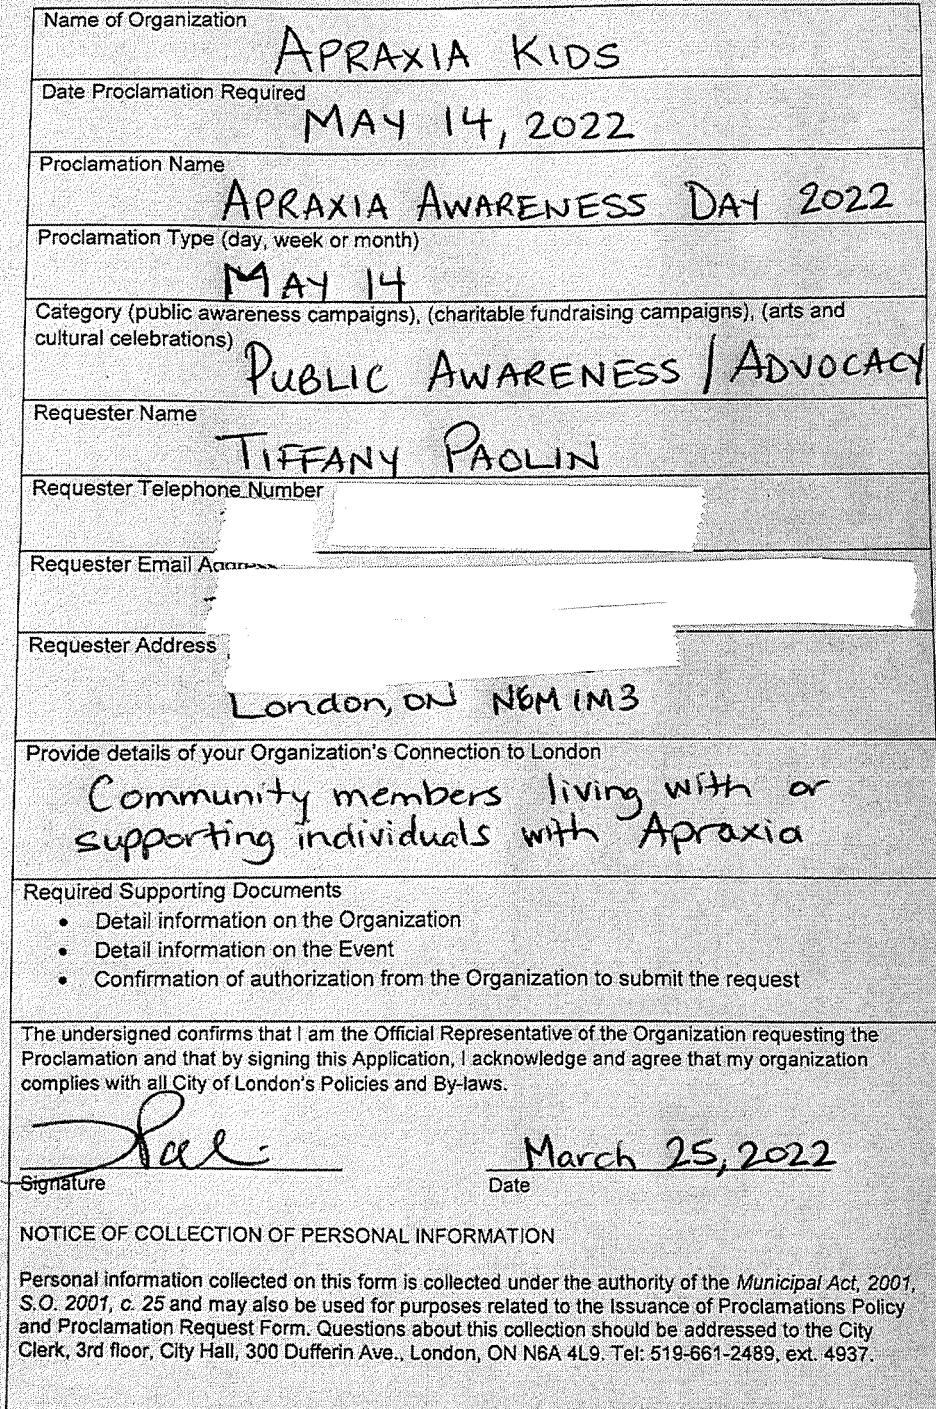 Name of Organization
APRAXIA KIDS
Date Proclamation Required
MAY 14, 2022
Proclamation Name
APRAXIA AWARENESS DAY 2022
Proclamation Type (day, week or month)
MAY 14
Category (public awareness campaigns), (charitable fundraising campaigns), (arts and
cultural celebrations)
PUBLIC AWARENESS / ADVOCACY
Requester Name
TIFFANY PAOLIN
Requester Telephone Number
Requester Email Address
Requester Address
London, ON N6M 1M3
Provide details of your Organization's Connection to London
Community members living with or
supporting individuals with Apraxia
Required Supporting Documents
• Detail information on the Organization
• Detail information on the Event
• Confirmation of authorization from the Organization to submit the request
The undersigned confirms that I am the Official Representative of the Organization requesting the
Proclamation and that by signing this Application, I acknowledge and agree that my organization
complies with all City of London's Policies and By-laws.
March 25, 2022
Signature Date
NOTICE OF COLLECTION OF PERSONAL INFORMATION
Personal information collected on this form is collected under the authority of the Municipal Act, 2001,
S.O. 2001, c. 25 and may also be used for purposes related to the Issuance of Proclamations Policy
and Proclamation Request Form. Questions about this collection should be addressed to the City
Clerk, 3rd floor, City Hall, 300 Dufferin Ave., London, ON N6A 4L9. Tel: 519-661-2489, ext. 4937.